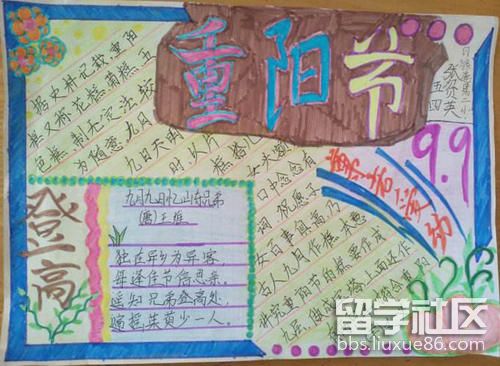 重阳节
9.9
登高
九月九日忆山东兄弟
(唐)王维
独在异乡为异客
每逢佳节倍思亲。
遥知兄弟登高处,
遍插茱萸少一人。
据史料记载重阳
糕又称花糕菊糕五
色糕制无定法较
为随意九月
九日天明
时以片
糕搭
女头额
口中念念有
词祝愿子
女百事俱高乃
古人九月作糕本意
讲究重阳节的糕要作成
九层,
留学社区
bbs.liuxue86.com